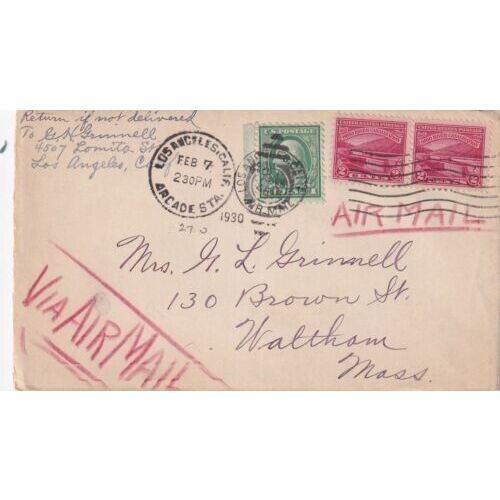 Return if not delivered
To G H Grinnell
4507 Lomita St
Los Angeles, C
LOS ANGELES, CALIF.
FEB 7
2 30 PM
ARCADE STA.
1930
U.S. POSTAGE
UNITED STATES POSTAGE
2 CENTS 2
UNITED STATES POSTAGE
2 CENTS 2
AIR MAIL
Mrs. G. L. Grinnell
130 Brown St.
Waltham
Mass.
VIA AIR MAIL